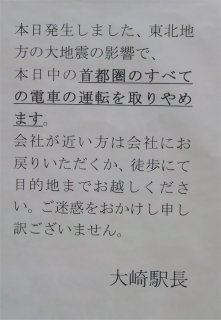 本日発生しました、東北地
方の大地震の影響で、
本日中の首都圏のすべて
の電車の運転を取りやめ
ます。
会社が近い方は会社にお
戻りいただくか、徒歩にて
目的地までお越しくださ
い。ご迷惑をおかけし申し
訳ございません。
大崎駅長